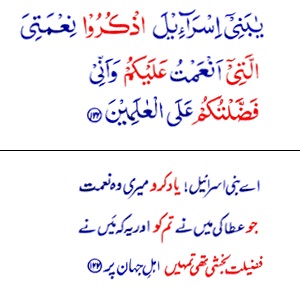 يٰبَنِىْٓ اِسْرَآءِيْلَ اذْكُرُوْا نِعْمَتِىَ
الَّتِىْٓ اَنْعَمْتُ عَلَيْكُمْ وَاَنِّىْ
فَضَّلْتُكُمْ عَلَى الْعٰلَمِيْنَ ﴿۱۲۲﴾
اے بنی اسرائیل! یاد کرو میری وہ نعمت
جو عطا کی میں نے تم کو اور یہ کہ مَیں نے
فضیلت بخشی تھی تمہیں اہلِ جہان پر ﴿۱۲۲﴾